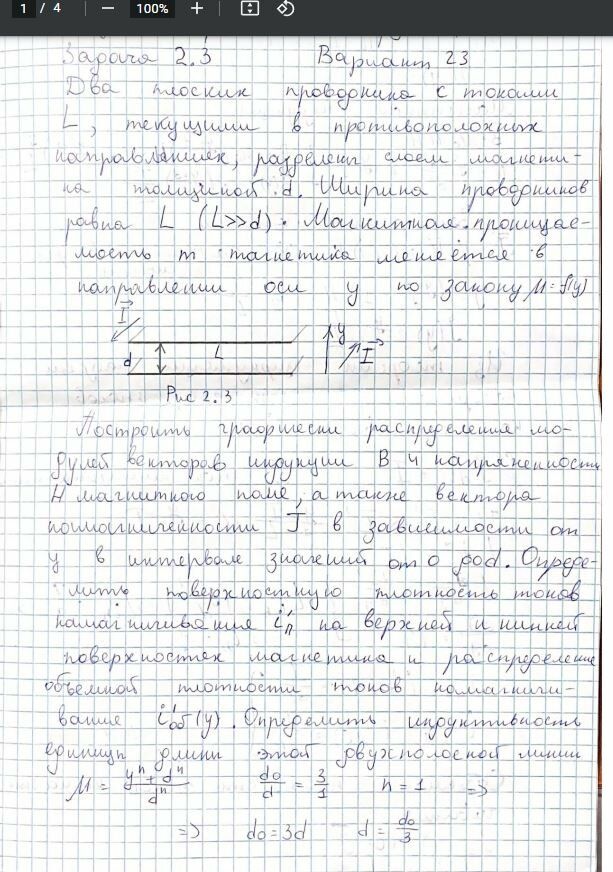 1 / 4 — 100% +
Задача 2.3 Вариант 23
Два плоских проводника с токами
L, текущими в противоположных
направлениях, разделены слоем магнети-
ка толщиной d. Ширина проводников
равна L (L>>d). Магнитная проницае-
мость m магнетика меняется в
направлении оси y по закону M=f(y)
I
y
d L I
Рис 2.3
Построить графически распределения мо-
дулей векторов индукции B и напряженности
H магнитного поле, а также вектора
намагниченности J в зависимости от
y в интервале значений от 0 до d. Опреде-
лить поверхностную плотность токов
намагничивание i'п на верхней и нижней
поверхностях магнетика и распределение
объемной плотности токов намагничи-
вание i'об (y). Определить индуктивность
единицы длины этой двухполосной линии
M = (yⁿ + dⁿ)/dⁿ d₀/d = 3/1 n = 1 =>
=> d₀ = 3d d = d₀/3